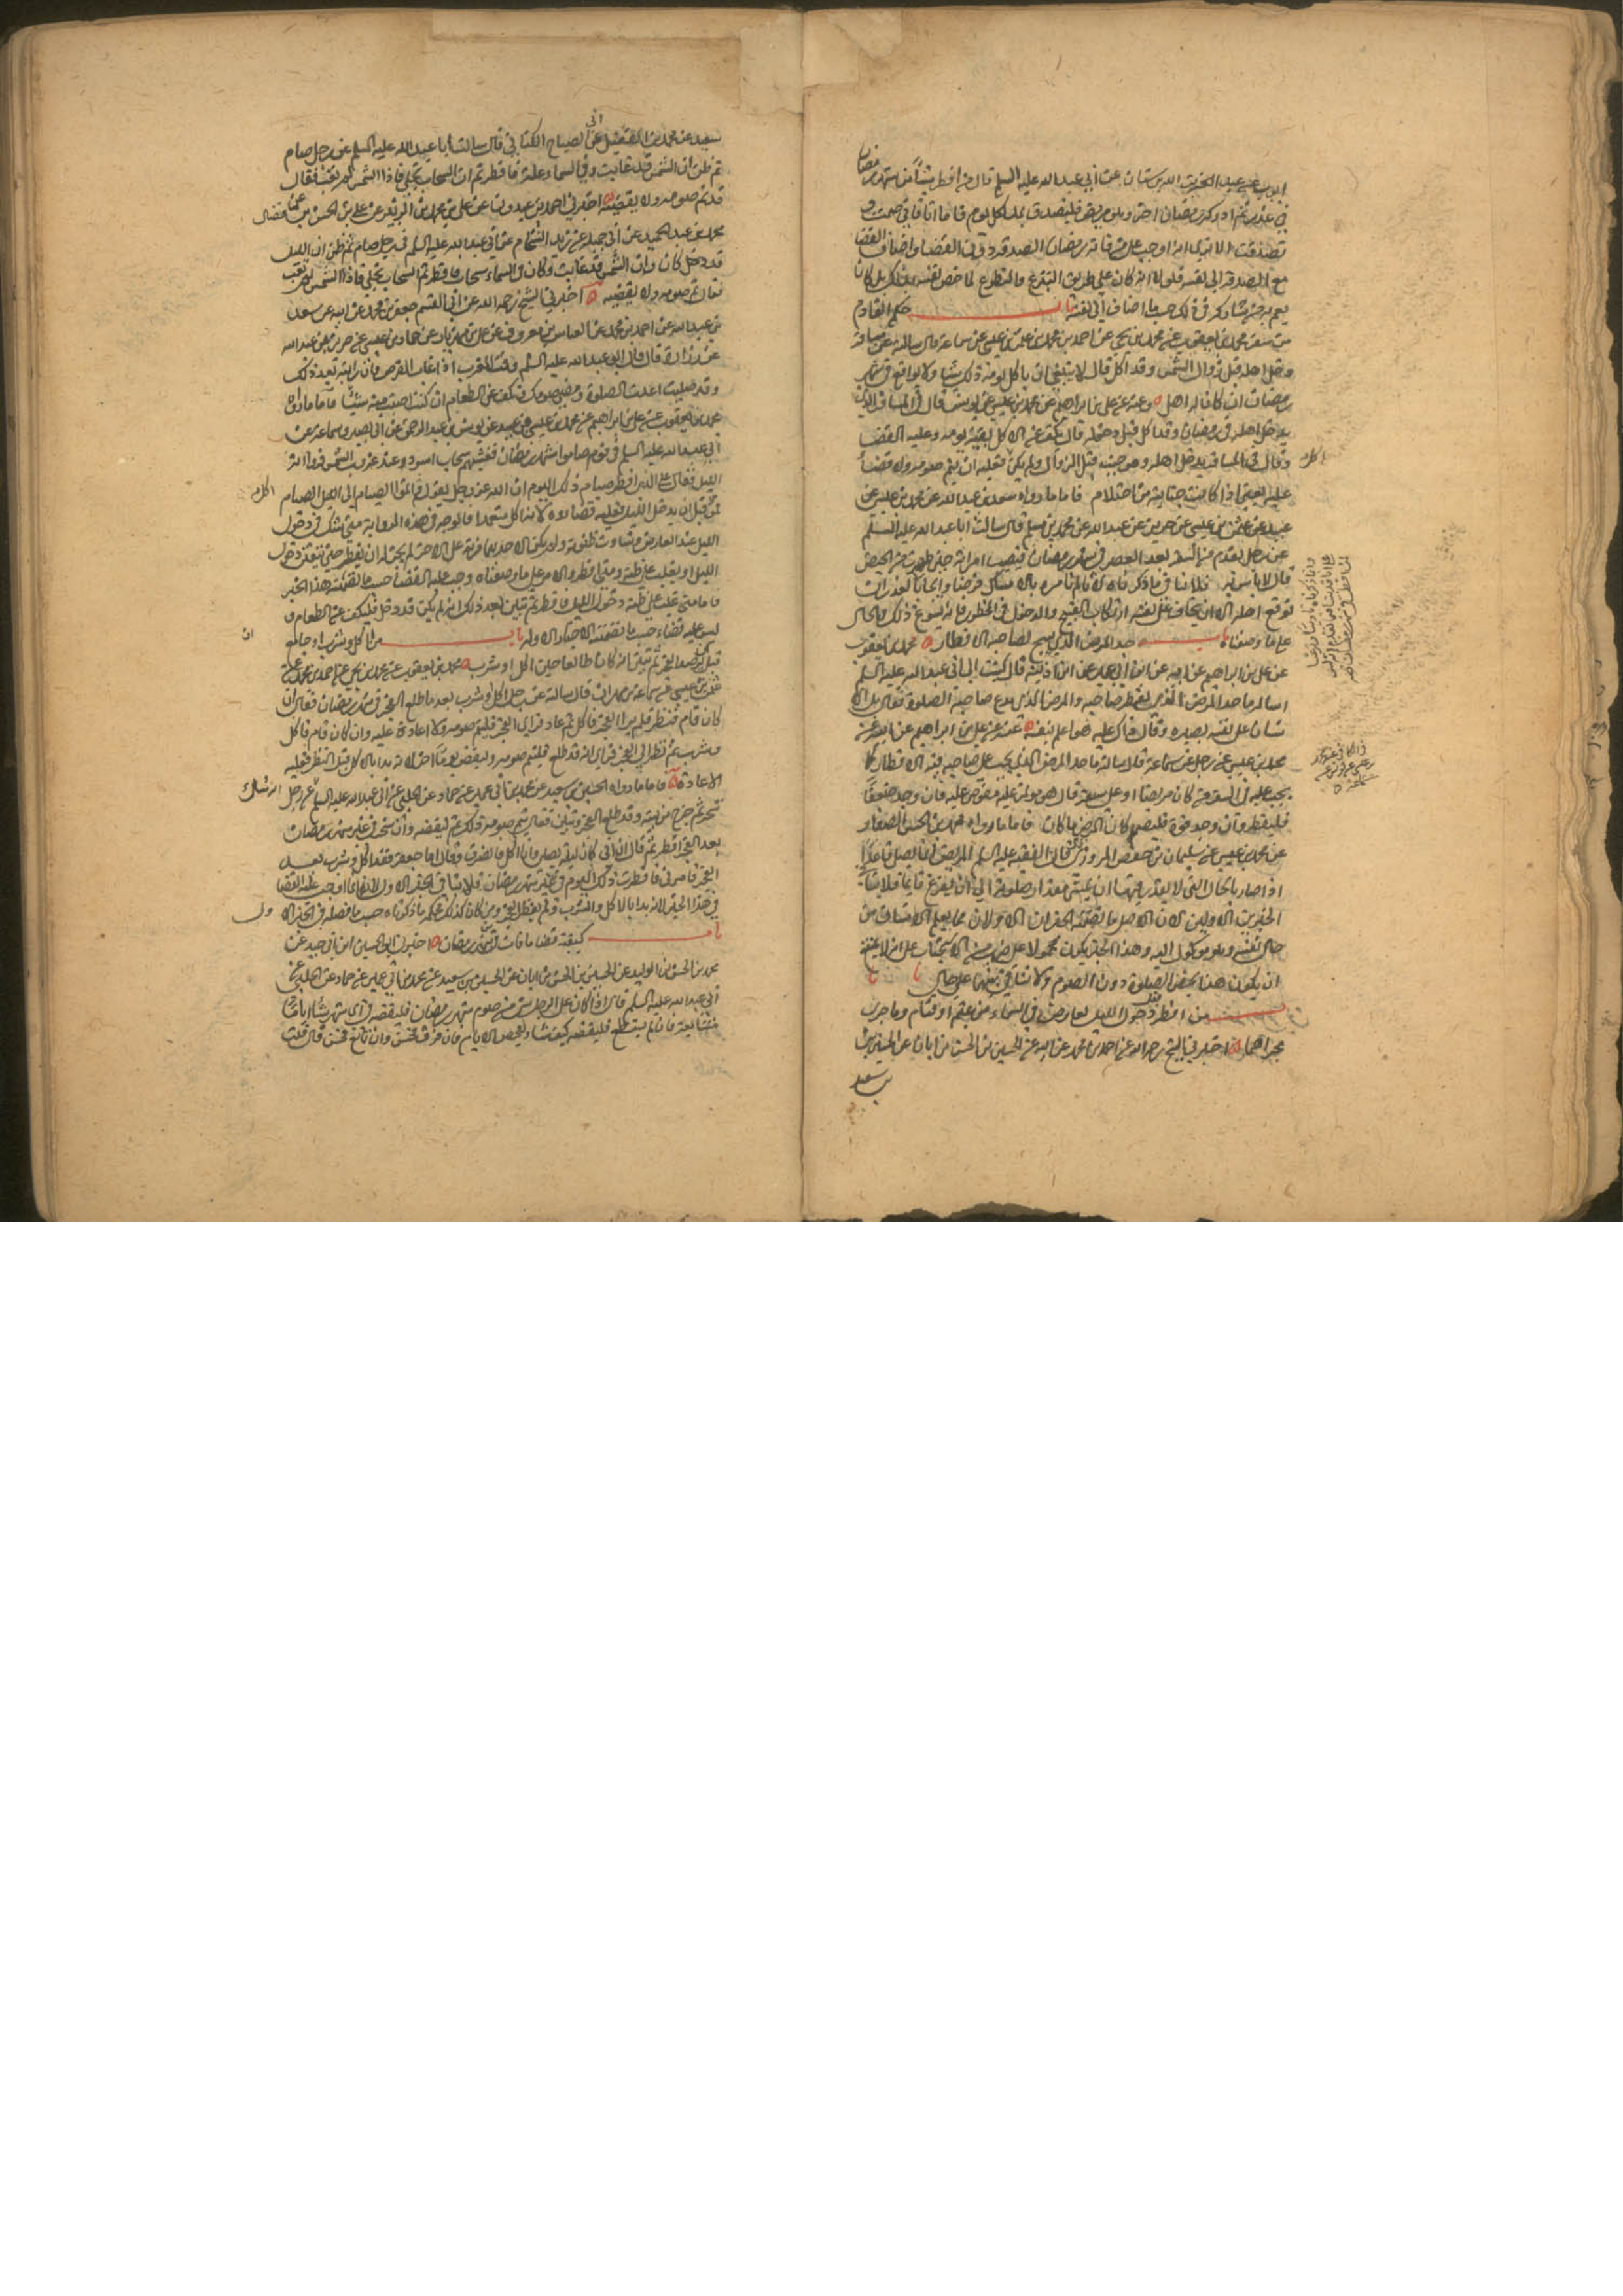 ايوب عن عبد الله بن سنان عن أبي عبد الله عليه السلم قال من افطر شيئا من شهر رمضان
في عذر ثم ادرك رمضان اخر وهو مريض فليتصدق بمد لكل يوم فاما انا فاني صمت و
تصدقت الا ترى انه اوجب على من فاته رمضان الصدقة دون القضا واضاف القضا
مع الصدقة الى نفسه فلولا انه كان على طريق التبرع والتطوع لما خص نفسه بذلك بل كان
يعم به حتى يشاركه في ذلك حسب ما اضاف الى نفسه باب حكم القادم
من سفره محمد بن يعقوب عن محمد بن يحيى عن احمد بن محمد عن عثمن بن عيسى عن سماعة قال سالته عن مسافر
دخل اهله قبل زوال الشمس وقد اكل قال لا ينبغي ان ياكل يومه ذلك شيئا ولا يواقع في شهر
رمضان ان كان له اهل وعنه عن علي بن ابراهيم عن محمد بن عيسى عن يونس قال قال في المسافر الذي
يدخل اهله في رمضان وقد اكل قبل دخوله قال يكف عن الاكل بقية يومه وعليه القضا
وقال في المسافر يدخل اهله وهو جنب قبل الزوال ولم يكن فعليه ان يتم صومه ولا قضاء
عليه يعني اذا كانت جنابته من احتلام فاما ما رواه سعد بن عبد الله عن محمد بن عيسى عن
عبيد عن عثمن بن عيسى عن حريز عن عبد الله عن محمد بن مسلم قال سالت ابا عبد الله عليه السلم
عن رجل يقدم من السفر بعد العصر في شهر رمضان فيصيب امراته حين طهرت من الحيض
قال لا باس به فلا ينافي ما ذكرناه لانه انما امره بالامساك
توقع اهله الا ان يخاف على نفسه ارتكاب القبيح والدخول في المحظور فانه يسوغ ذلك والحال
على ما وصفناه باب حد المرض الذي يبيح لصاحبه الافطار محمد بن يعقوب
عن علي بن ابراهيم عن ابيه عن ابن ابي عمير عن ابن اذينة قال كتبت الى ابي عبد الله عليه السلم
اساله ما حد المرض الذي يفطر صاحبه والمرض الذي يدع صاحبه الصلوة فقال بل الا
نسان على نفسه بصيرة وقال ذاك عليه هو اعلم بنفسه عنه عن علي بن ابراهيم عن ابيه عن
محمد بن عيسى عن رجل عن سماعة قال سالته ما حد المرض الذي يجب على صاحبه فيه الافطار كما
يجب عليه في السفر من كان مريضا او على سفر قال هو مؤتمن عليه مفوض عليه فان وجد ضعفا
فليفطر وان وجد قوة فليصم كان المرض ما كان فاما ما رواه محمد بن الحسن الصفار
عن محمد بن عيسى عن سليمان بن حفص المروزي قال الفقيه عليه السلم المريض انما يصلي قاعدا
اذا صار بالحال التي لا يقدر فيها ان يمشي مقدار صلوته الى ان يفرغ قائما فلا ينافي
الخبرين الاولين لان الاصل ما تضمنه الخبران الاولان مما يعلم الانسان من
حال نفسه وهو موكول اليه وهذا الخبر يكون محمولا على ضرب من الاستحباب على انه لا يمتنع
ان يكون هذا يخص الصلوة دون الصوم ولا تنافي بينهما على حال
باب من افطر قبل دخول الليل لعارض في السماء من غيم او قتام وما جرى
مجراهما اخبرني الشيخ رحمه الله عن احمد بن محمد عن ابيه عن الحسين بن الحسن بن ابان عن الحسين
بن سعيد
سعيد عن محمد بن الفضيل عن ابي الصباح الكناني قال سالت ابا عبد الله عليه السلم عن رجل صام
ثم ظن ان الشمس قد غابت وفي السماء علة فافطر ثم ان السحاب تجلى فاذا الشمس لم تغب فقال
قد تم صومه ولا يقضيه اخبرني احمد بن عبدون عن علي بن محمد بن الزبير عن علي بن الحسن بن فضال عن
محمد بن عبد الحميد عن ابي جميلة عن زيد الشحام عن ابي عبد الله عليه السلم في رجل صام ثم ظن ان الليل
قد دخل كان وان الشمس قد غابت وكان في السماء سحاب فافطر ثم السحاب تجلى فاذا الشمس لم تغب
فقال تم صومه ولا يقضيه اخبرني الشيخ رحمه الله عن ابي القسم جعفر بن محمد عن ابيه عن سعد
بن عبد الله عن احمد بن محمد عن العباس بن معروف عن علي بن مهزيار عن حماد بن عيسى عن حريز بن عبد الله
عن زرارة قال قال ابو عبد الله عليه السلم وقت المغرب اذا غاب القرص فان رايته بعد ذلك
وقد صليت اعدت الصلوة ومضى صومك وتكف عن الطعام ان كنت اصبت منه شيئا فاما ما رواه
محمد بن يعقوب عن علي بن ابراهيم عن محمد بن عيسى بن عبيد عن يونس بن عبد الرحمن عن ابي بصير وسماعة عن
ابي عبد الله عليه السلم في قوم صاموا شهر رمضان فغشيهم سحاب اسود عند غروب الشمس فراوا انه
الليل فقال على الذي افطر صيام ذلك اليوم ان الله عز وجل يقول واتموا الصيام الى الليل
فمن اكل قبل ان يدخل الليل فعليه قضاؤه لانه اكل متعمدا فالوجه في هذه الرواية متى شك في دخول
الليل عند العارض وتساوت ظنونه ولم يكن لاحدهما مزية على الاخر لم يجز له ان يفطر حتى يتيقن دخول
الليل او يغلب على ظنه ومتى افطر والامر على ما وصفناه وجب عليه القضا حسب ما تضمنه هذا الخبر
فاما متى غلب على ظنه دخول الليل فافطر ثم تبين بعد ذلك انه لم يكن قد دخل فليكف عن الطعام و
ليس عليه قضاء حسب ما تضمنته الاخبار الاوله باب من اكل وشرب او جامع
قبل ان يرصد الفجر ثم تبين انه كان طالعا حين اكل او شرب محمد بن يعقوب عن محمد بن يحيى عن احمد بن محمد عن
عثمن بن عيسى عن سماعة بن مهران قال سالته عن رجل اكل وشرب بعد ما طلع الفجر في شهر رمضان فقال ان
كان قام فنظر فلم ير الفجر فاكل ثم عاد فراى الفجر فليتم صومه ولا اعادة عليه وان كان قام فاكل
وشرب ثم نظر الى الفجر فراى انه قد طلع فليتم صومه ويقضي يوما اخر لانه بدا بالاكل قبل النظر فعليه
الاعادة فاما ما رواه الحسين بن سعيد عن محمد بن ابي عمير عن حماد عن الحلبي عن ابي عبد الله عليه السلم عن رجل انه سئل
تسحر ثم خرج من بيته وقد طلع الفجر وتبين فقال يتم صومه ذلك ثم ليقضه وان تسحر في غير شهر رمضان
بعد الفجر افطر ثم قال ان ابي كان ليلة يصلي وانا اكل فانصرف فقال اما جعفر فقد اكل وشرب بعد
الفجر فامرني فافطرت ذلك اليوم في غير شهر رمضان فلا ينافي الخبر الاول لانه انما اوجب عليه القضا
في هذا الخبر لانه بدا بالاكل والشرب ولم ينظر الفجر ومن كان كذلك حكمه ما ذكرناه حسب ما فصله في الخبر الاول
باب كيفية قضا ما فات من شهر رمضان اخبرني ابو الحسين ابن ابي جيد عن
محمد بن الحسن بن الوليد عن الحسين بن الحسن بن ابان عن الحسين بن سعيد عن محمد بن ابي عمير عن حماد عن الحلبي عن
ابي عبد الله عليه السلم قال اذا كان على الرجل شيء من صوم شهر رمضان فليقضه في اي شهر شاء اياما
متتابعة فان لم يستطع فليقضه كيف شاء وليحص الايام فان فرق فحسن وان تابع فحسن قال قلت